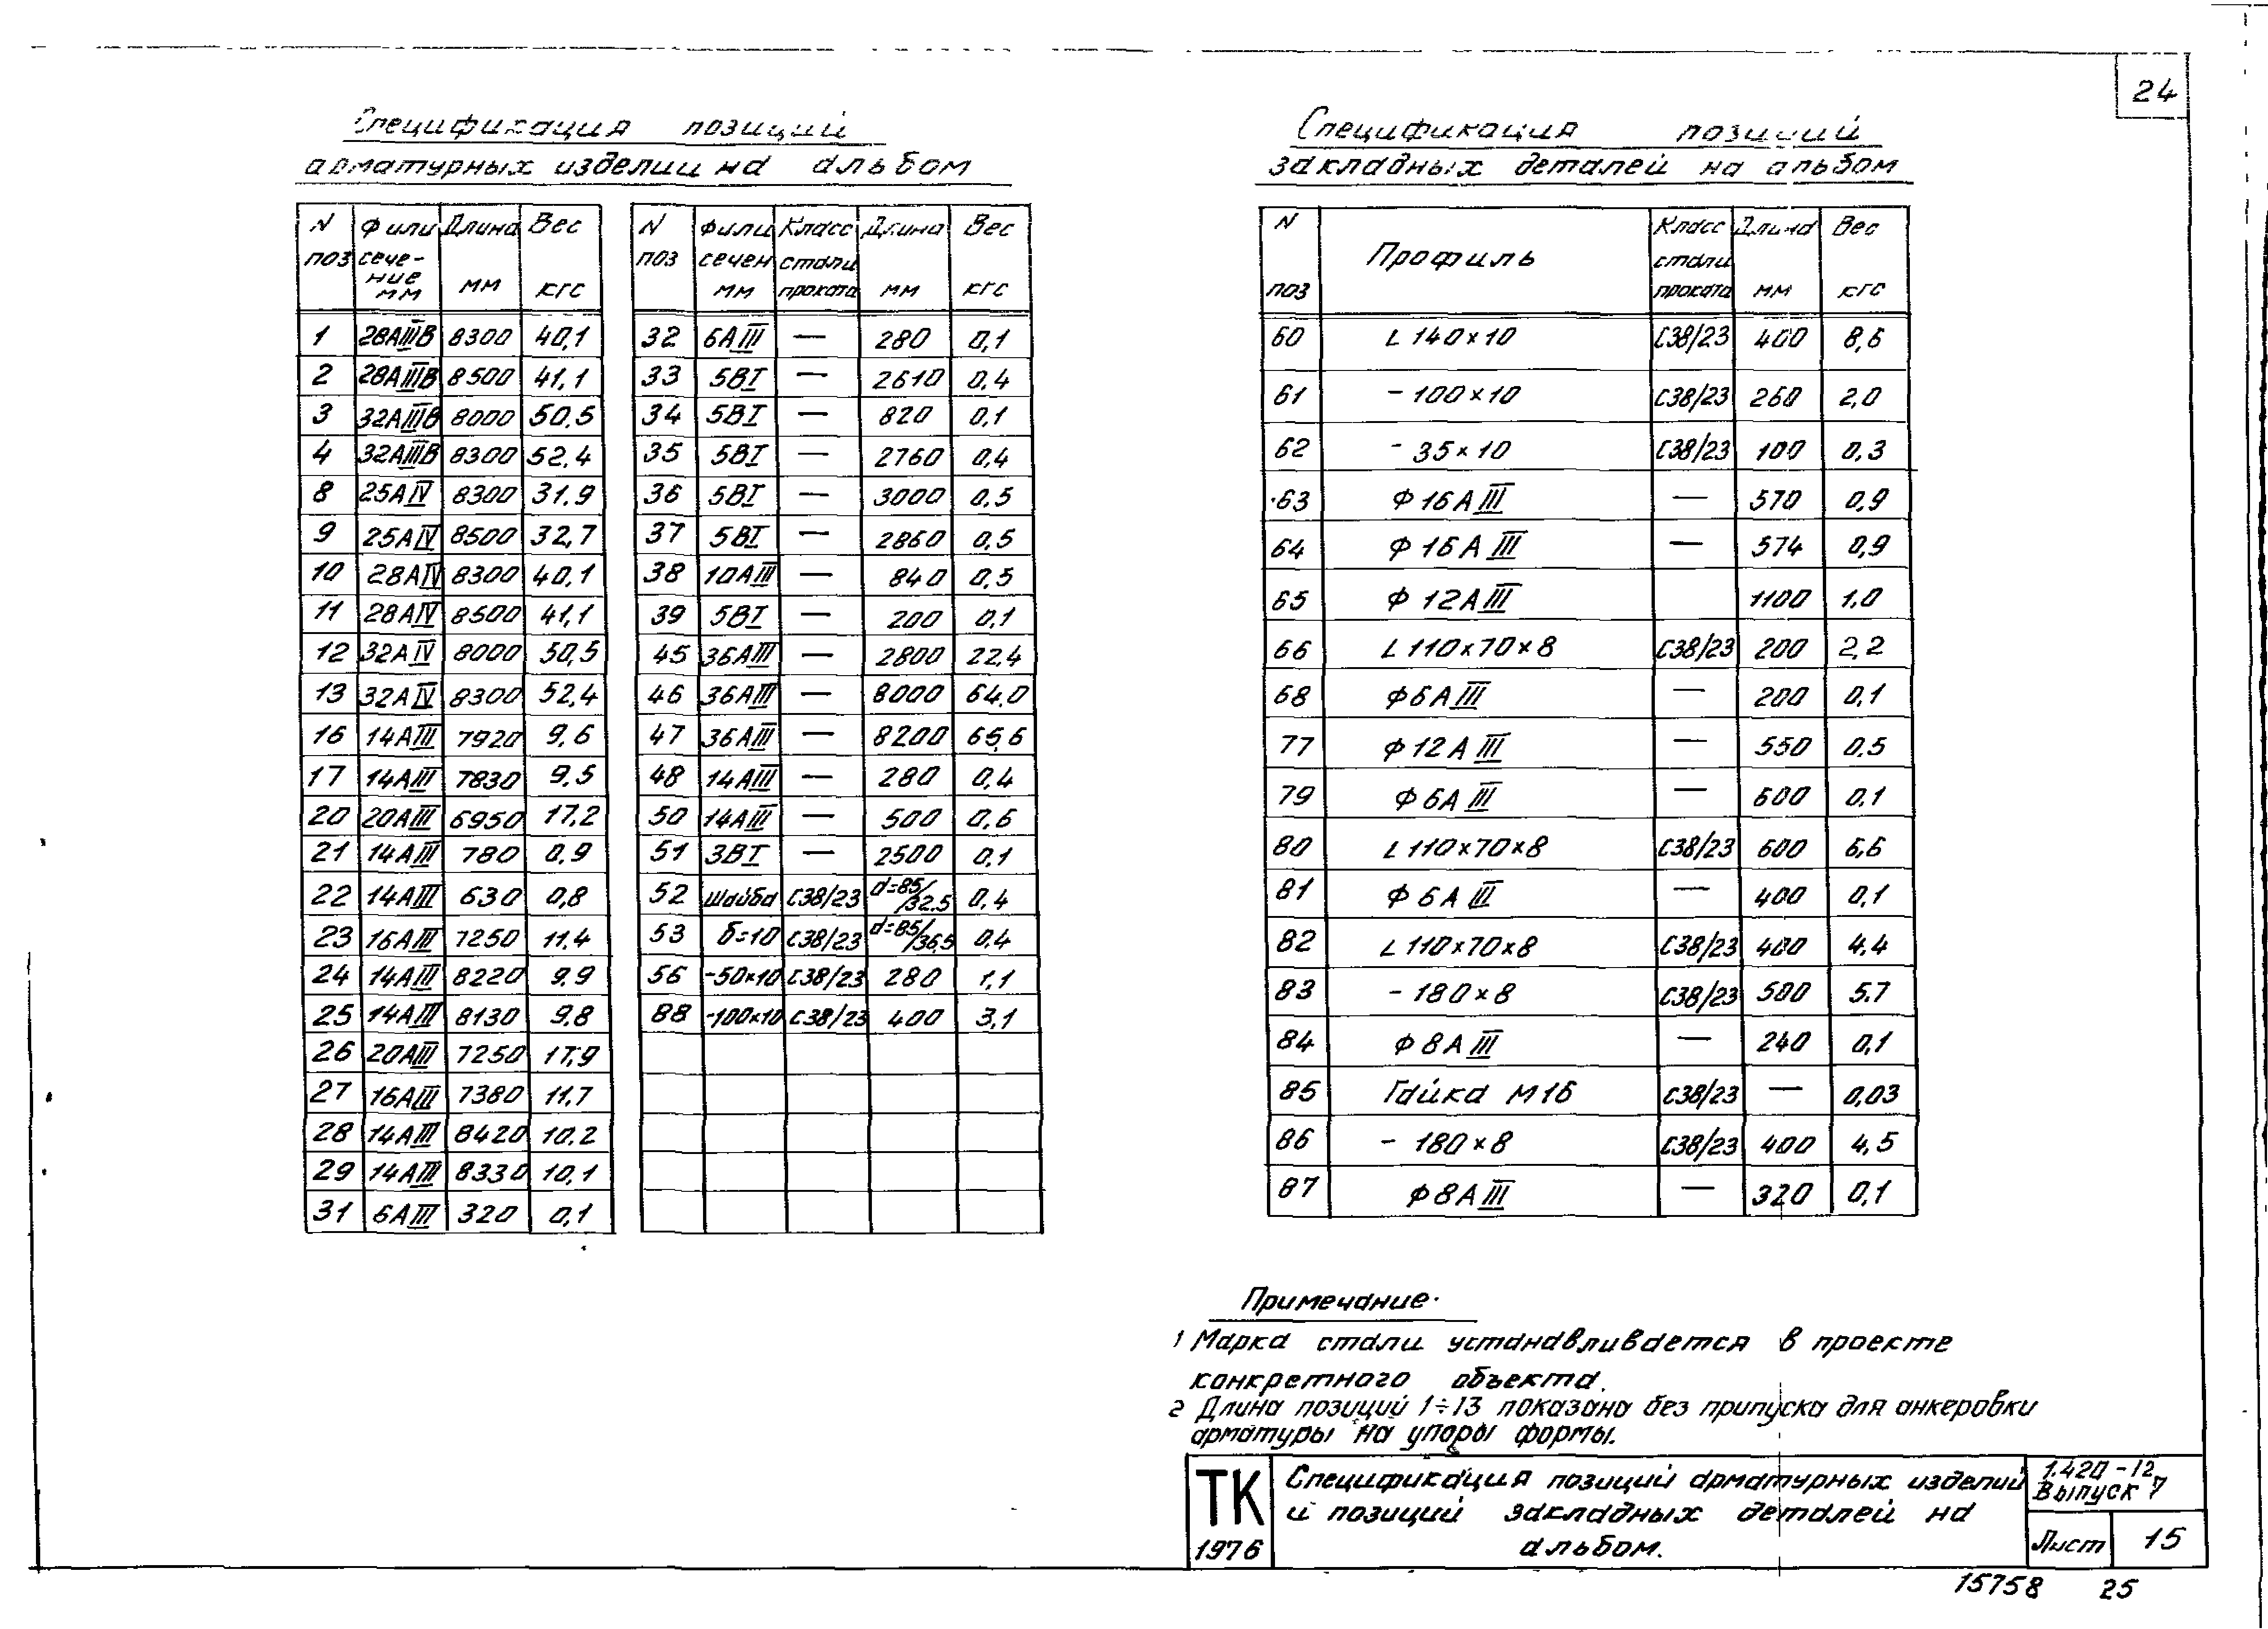 24
Спецификация позиций
арматурных изделии на альбом
N поз Ф или сече-ние мм Длина мм Вес кгс
1 28АIIIВ 8300 40,1
2 28АIIIВ 8500 41,1
3 32АIIIВ 8000 50.5
4 32АIIIВ 8300 52,4
8 25АIV 8300 31.9
9 25АIV 8500 32,7
10 28АIV 8300 40,1
11 28АIV 8500 41,1
12 32АIV 8000 50,5
13 32АIV 8300 52,4
16 14АIII 7920 9,6
17 14АIII 7830 9.5
20 20АIII 6950 17,2
21 14АIII 780 0,9
22 14АIII 630 0,8
23 16АIII 7250 11,4
24 14АIII 8220 9,9
25 14АIII 8130 9.8
26 20АIII 7250 17,9
27 16АIII 7380 11.7
28 14АIII 8420 10.2
29 14АIII 8330 10,1
31 6АIII 320 0,1
N поз Ф или сечен мм Класс стали проката Длина мм Вес кгс
32 6АIII — 280 0,1
33 5ВI — 2610 0,4
34 5ВI — 820 0,1
35 5ВI — 2760 0,4
36 5ВI — 3000 0,5
37 5ВI — 2860 0,5
38 10АIII — 840 0,5
39 5ВI — 200 0,1
45 36АIII — 2800 22,4
46 36АIII — 8000 64,0
47 36АIII — 8200 65,6
48 14АIII — 280 0,4
50 14АIII — 500 0,6
51 3ВI — 2500 0,1
52 шайба С38/23 d=85/32.5 0,4
53 б=10 С38/23 d=85/36,5 0,4
56 -50×10 С38/23 280 1,1
88 -100×10 С38/23 400 3,1
Спецификация позиций
закладных деталей на альбом
N поз Профиль Класс стали проката Длина мм Вес кгс
60 L 140×10 С38/23 400 8,6
61 - 100×10 С38/23 260 2,0
62 - 35×10 С38/23 100 0,3
63 Ф 16 А III — 570 0,9
64 Ф 16 А III — 574 0,9
65 Ф 12 А III 1100 1.0
66 L 110×70×8 С38/23 200 2,2
68 Ф 6 А III — 200 0,1
77 Ф 12 А III — 550 0,5
79 Ф 6А III — 600 0.1
80 L 110×70×8 С38/23 600 6,6
81 Ф 6 А III — 400 0,1
82 L 110×70×8 С38/23 400 4,4
83 - 180×8 С38/23 500 5.7
84 Ф 8 А III — 240 0,1
85 Гайка М16 С38/23 — 0,03
86 - 180×8 С38/23 400 4,5
87 Ф 8 А III — 320 0,1
Примечание.
1 Марка стали устанавливается в проекте
конкретного объекта.
2 Длина позиций 1÷13 показана без припуска для анкеровки
арматуры на упоры формы.
ТК
1976
Спецификация позиций арматурных изделий
и позиций закладных деталей на
альбом.
1.420-12
Выпуск 7
Лист 15
15758 25